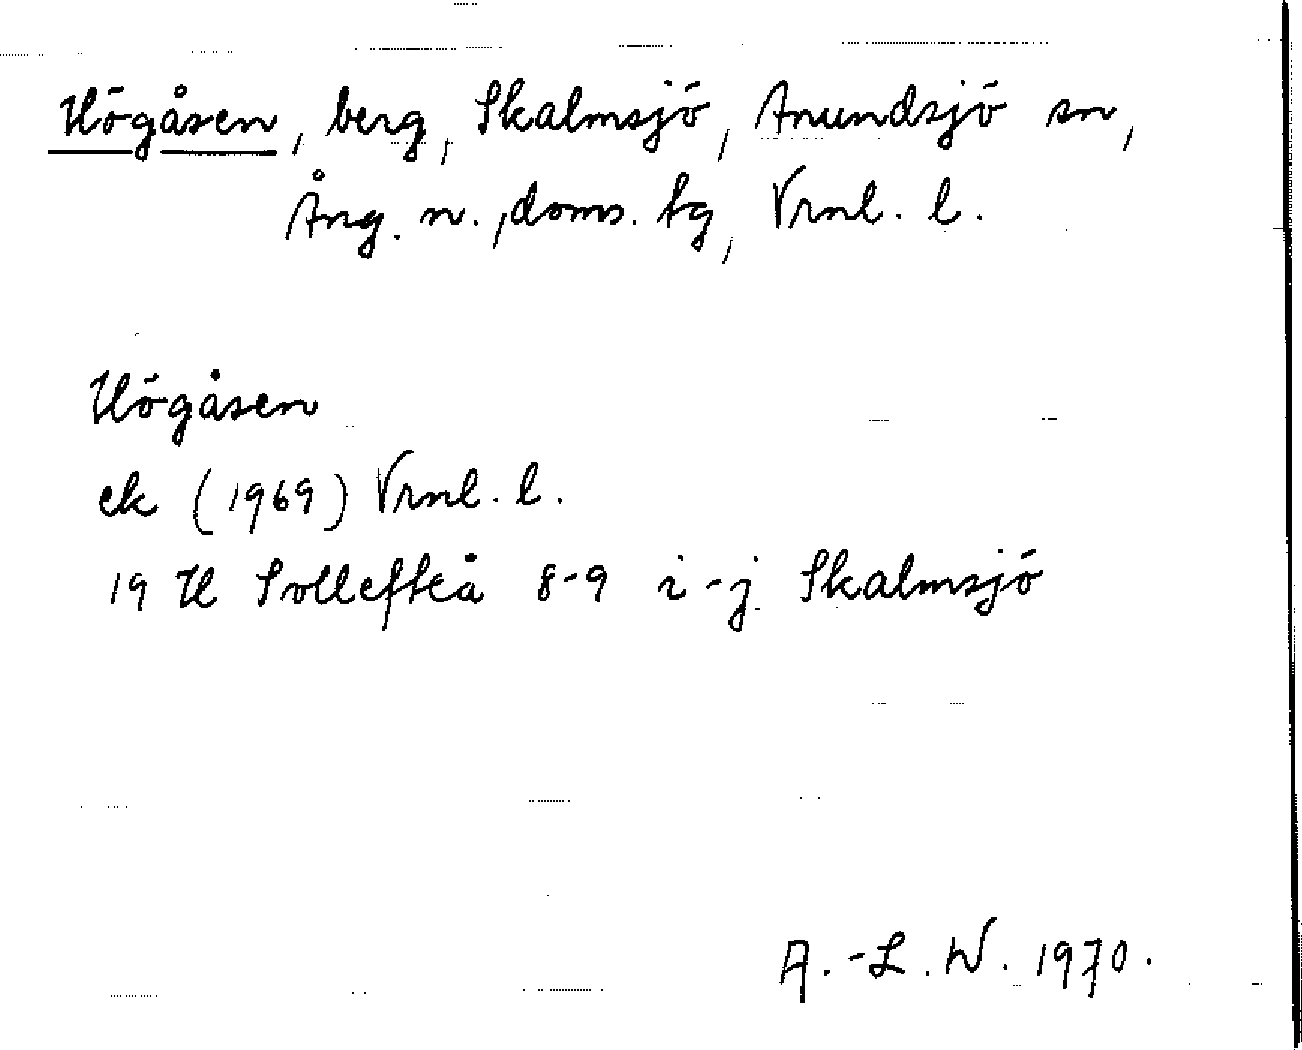 Högåsen, berg, Skalmsjö, Anundsjö sn,
Ång. n., doms. tg, Vrnl. l.
Högåsen
ek (1969) Vrnl. l.
19 H Sollefteå 8-9 i-j Skalmsjö
A.-L. W. 1970.